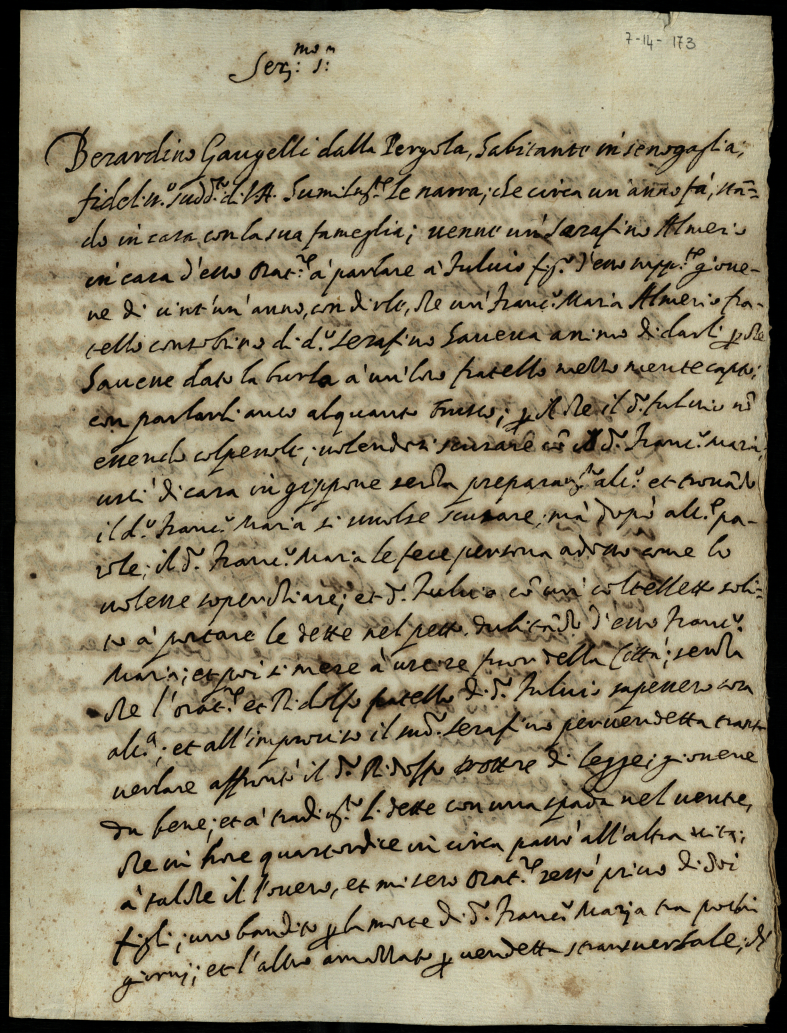 7-14-173
Ser.mo S.r
Berardino Gaugelli dalla Pergola, habitante in senogaglia,
fidelis.o sudd.o di V.A. humilm.te le narra, che circa un'anno fà, stan=
do in casa con la sua fameglia; venne un' Serafino Almerio
in casa d'esso orat.re à parlare à Fulvio fig.o d'esso supp.te giove-
ne di vint'un'anno, con dirli, che un' Franc.o Maria Almerio fra-
tello consobrino di d.o Serafino haveva animo di darli p che
haveve dato la burla à un' loro fratello mezzo mentecapto;
con parlarli anco alquanto brusco; p il che il d.o Fulvio nō
essendo colpevole; volendosi scusare cō il d.o Franc.o Maria,
uscì di casa in gippone senza preparat.ne alc.a et trovādo
il d.o Franc.o Maria si volse scusare, mà dopò alc.e pa-
role; il d.o Franc.o Maria le fece persona adosso come lo
volesse soperchiare; et d.o Fulvio cō un' coltelletto soli=
to à portare le dette nel petto, dubitādo d'esso Franc.o
Maria; et poi si mese à uscire fuor della Città; senza
che l'orat.re et Ridolfo fratello di d.o Fulvio sapessero cosa
alc.a; et all'improviso il sud.o Serafino per vendetta trans-
versale affrontò il d.o Ridolfo dottore di legge; giovene
da bene; et à tradim.to li dette con una spada nel ventre,
che in hore quatordice in circa passò all'altra vita;
à talche il povero, et misero orat.re restò privo di doi
figli; uno bandito p la morte di d.o Franc.o Maria tra pochi
giorni; et l'altro amazzato p vendetta transversale; et